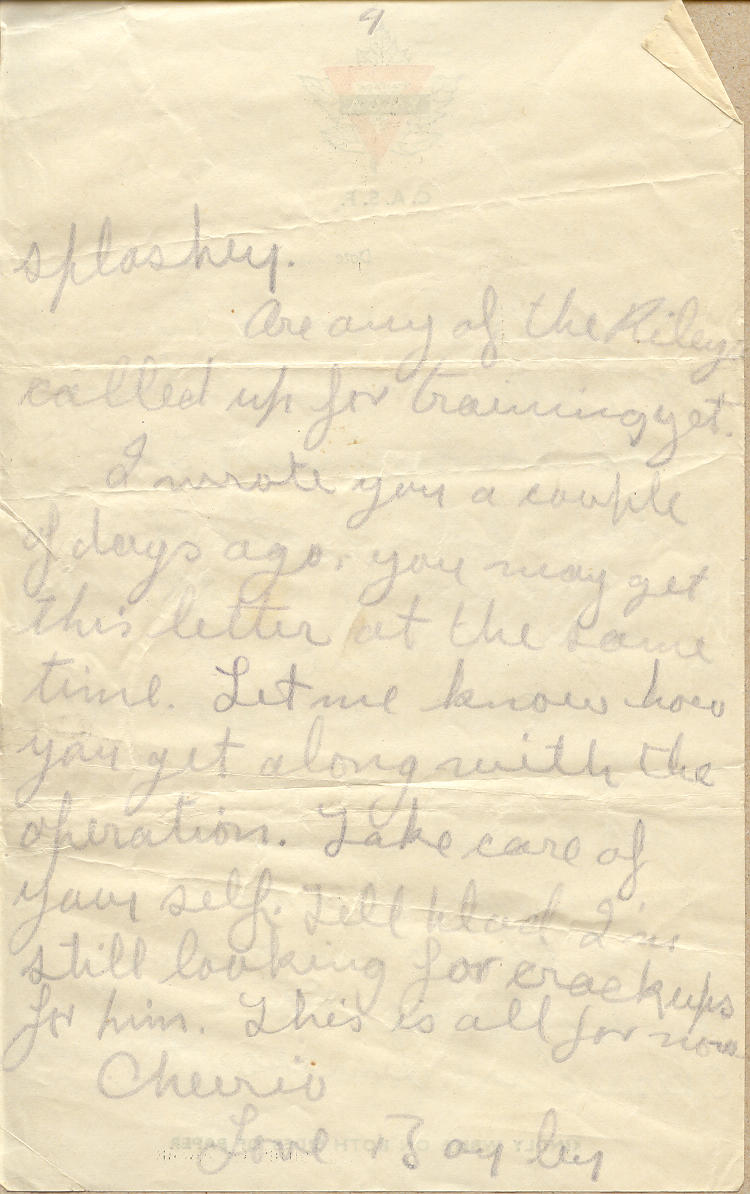 9
C.A.S.F.
Date
splashey.
Are any of the Rileys
called up for training yet.
I wrote you a couple
of days ago. you may get
this letter at the same
time. Let me know how
you get along with the
operation. Take care of
your self. Tell I'm
still looking for crackups
for him. This is all for now
Cheerio
Love
KINDLY WRITE ON BOTH SIDES OF PAPER